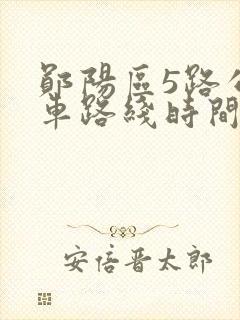 鄖陽區5路公
車路綫時間
安倍晋太郎